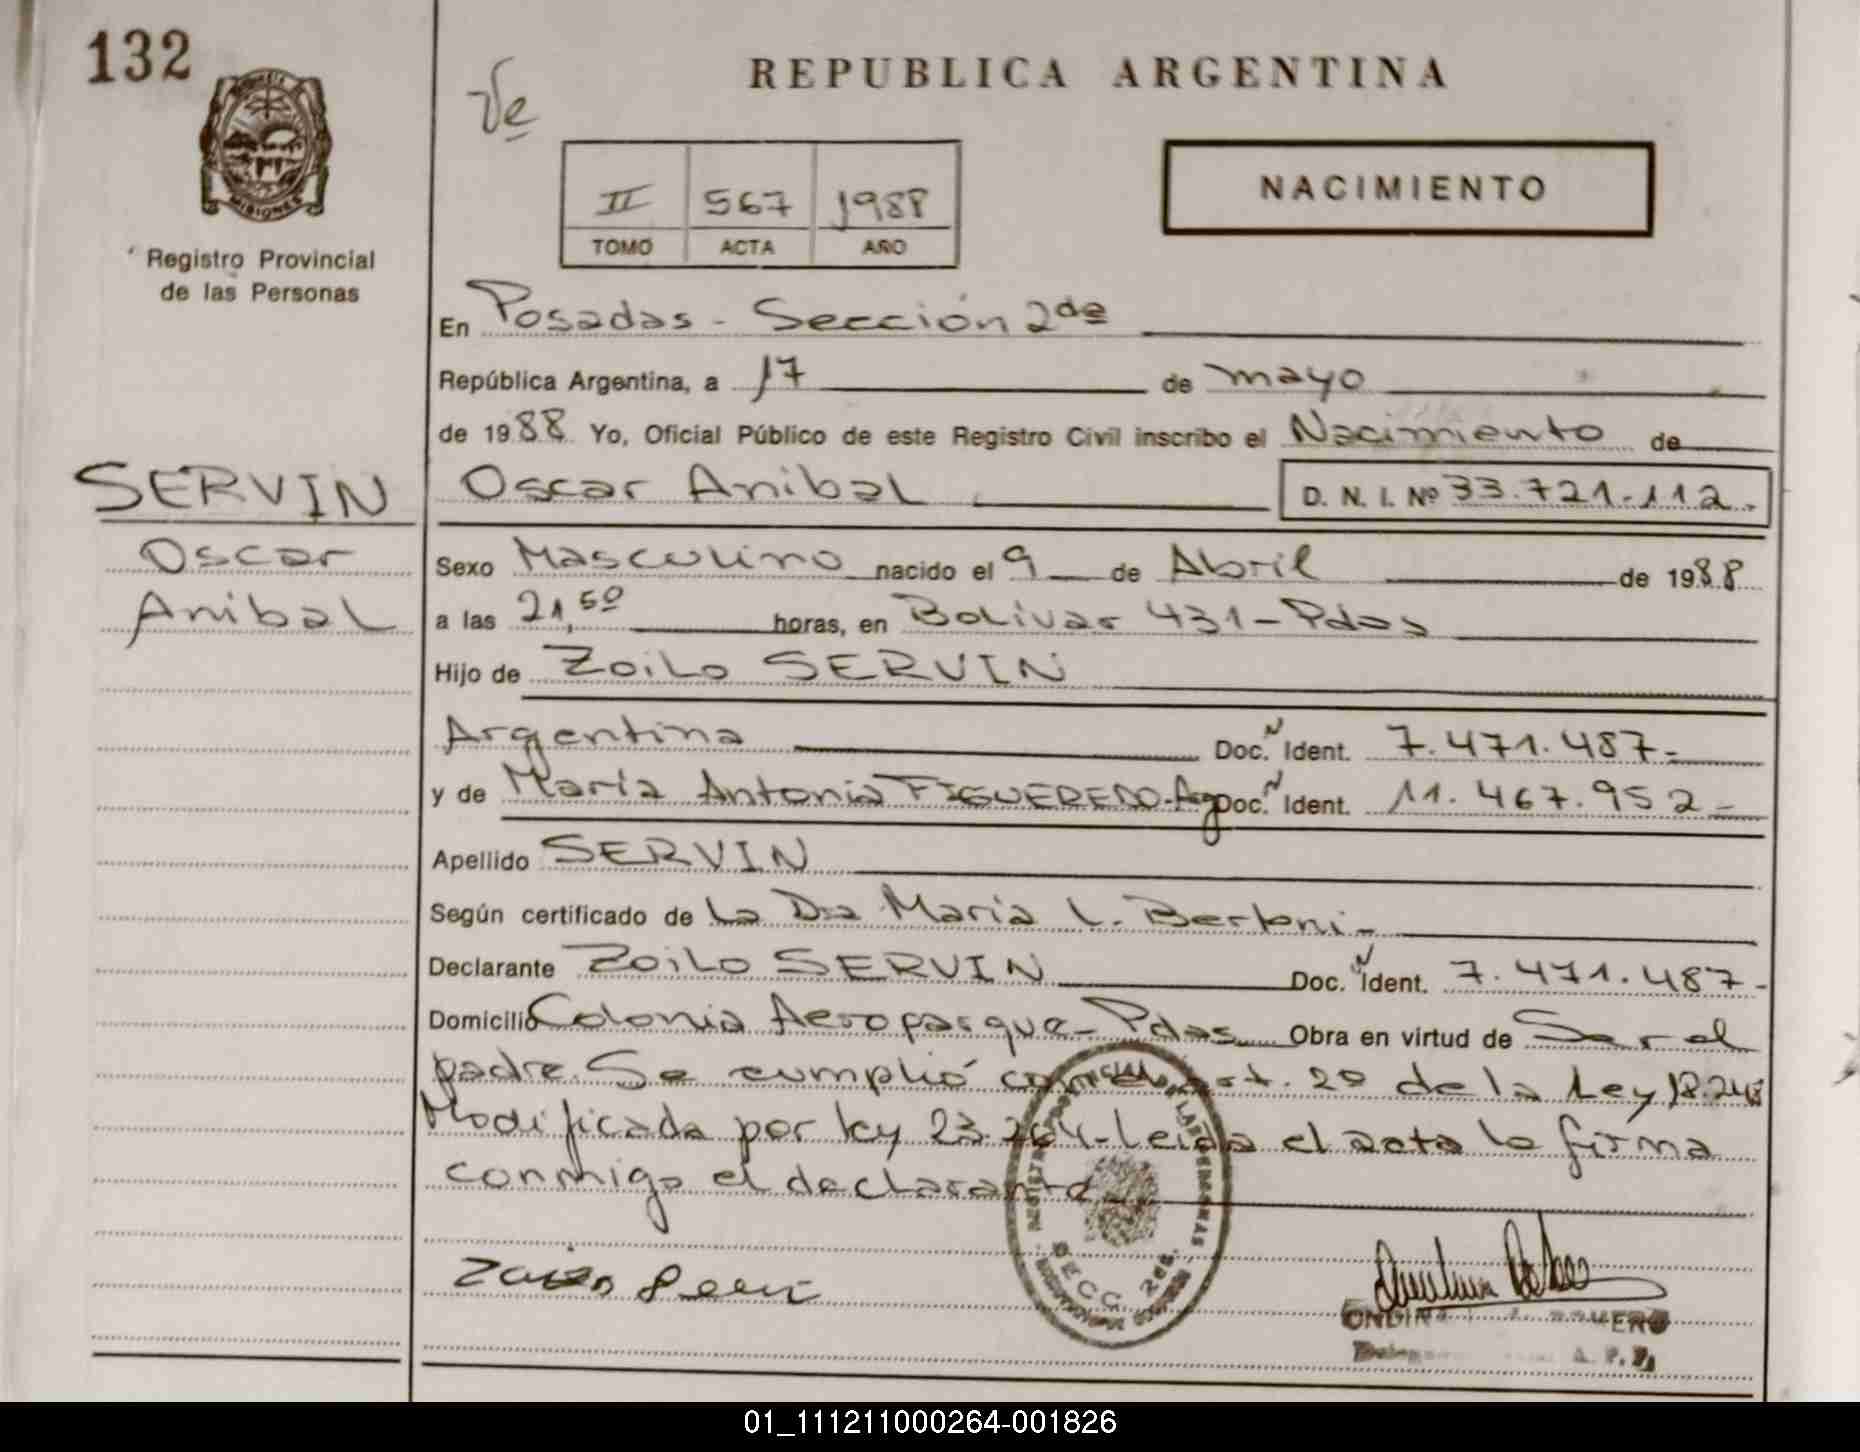 132
Ve
REPUBLICA ARGENTINA
MISIONES
Registro Provincial
de las Personas
II 567 1988
TOMO ACTA AÑO
NACIMIENTO
En Posadas - Sección 2da
República Argentina, a 17 de mayo
de 1988 Yo, Oficial Público de este Registro Civil inscribo el Nacimiento de
SERVIN
Oscar Anibal D. N. I. Nº 33.721.112.-
Oscar
Anibal
Sexo Masculino nacido el 9 de Abril de 1988
a las 21,50 horas, en Bolivar 431 - Pdas
Hijo de Zoilo SERVIN
Argentina Doc. Ident. 7.471.487-
y de María Antonia FIGUEREDO-Ag Doc. Ident. 11.467.952-
Apellido SERVIN
Según certificado de La Dra María L. Bertoni-
Declarante Zoilo SERVIN Doc. Ident. 7.471.487-
Domicilio Colonia Aeroparque - Pdas Obra en virtud de Ser el
padre. Se cumplió con el art. 20 de la Ley 18.248
Modificada por ley 23.264-Leida el acta la firma
conmigo el declarante
SECC. 2da.
01_111211000264-001826